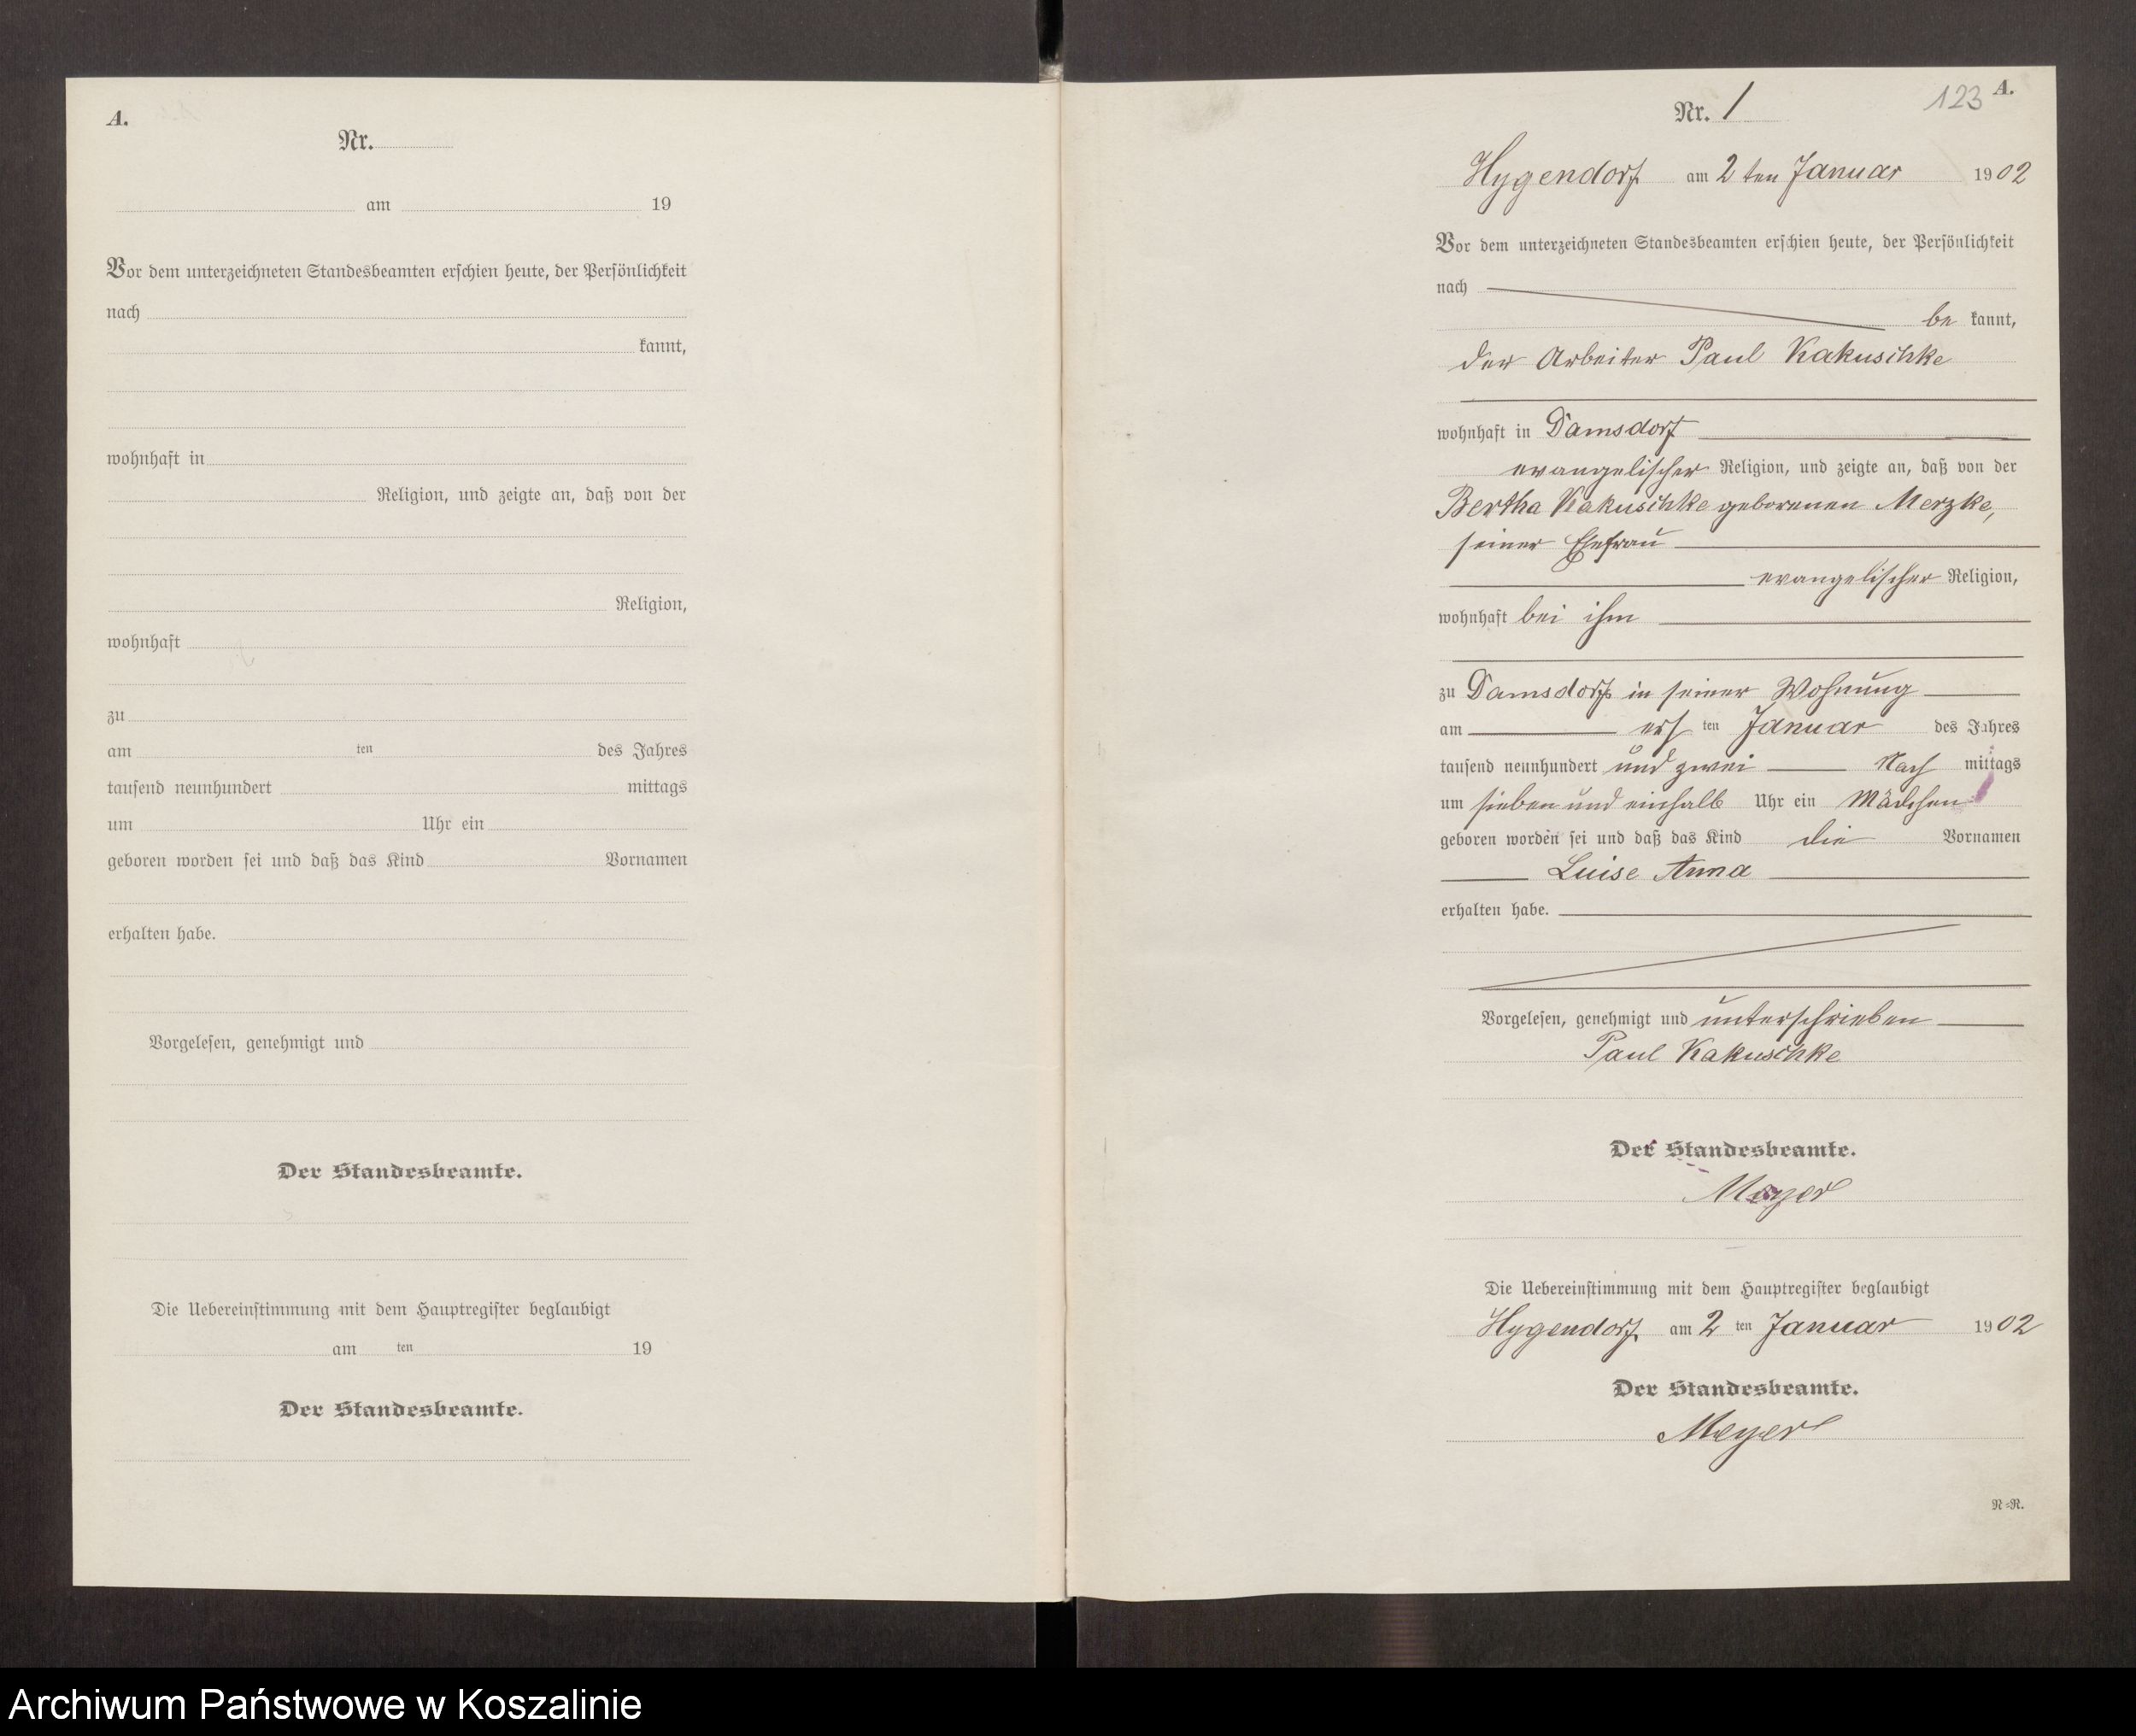 A.
Nr.
am 19
Vor dem unterzeichneten Standesbeamten erschien heute, der Persönlichkeit
nach
kannt,
wohnhaft in
Religion, und zeigte an, daß von der
Religion,
wohnhaft
zu
am ten des Jahres
tausend neunhundert mittags
um Uhr ein
geboren worden sei und daß das Kind Vornamen
erhalten habe.
Vorgelesen, genehmigt und
Der Standesbeamte.
Die Uebereinstimmung mit dem Hauptregister beglaubigt
am ten 19
Der Standesbeamte.
123 A.
Nr. 1
Hygendorf am 2 ten Januar 1902
Vor dem unterzeichneten Standesbeamten erschien heute, der Persönlichkeit
nach
be kannt,
der Arbeiter Paul Kakuschke
wohnhaft in Damsdorf
evangelischer Religion, und zeigte an, daß von der
Bertha Kakuschke geborenen Merzke,
seiner Ehefrau
evangelischer Religion,
wohnhaft bei ihm
zu Damsdorf in seiner Wohnung
am ers ten Januar des Jahres
tausend neunhundert und zwei Nach mittags
um sieben und einhalb Uhr ein Mädchen
geboren worden sei und daß das Kind die Vornamen
Luise Anna
erhalten habe.
Vorgelesen, genehmigt und unterschrieben
Paul Kakuschke
Der Standesbeamte.
Meyer
Die Uebereinstimmung mit dem Hauptregister beglaubigt
Hygendorf am 2 ten Januar 1902
Der Standesbeamte.
Meyer
N=N.
Archiwum Państwowe w Koszalinie